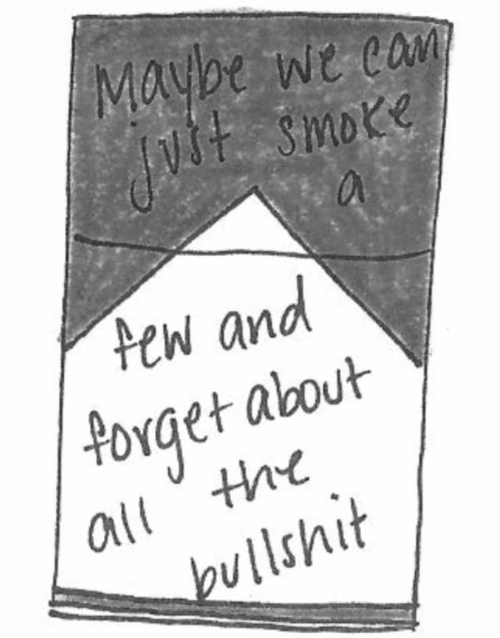 Maybe we can
just smoke
a
few and
forget about
all the
bullshit